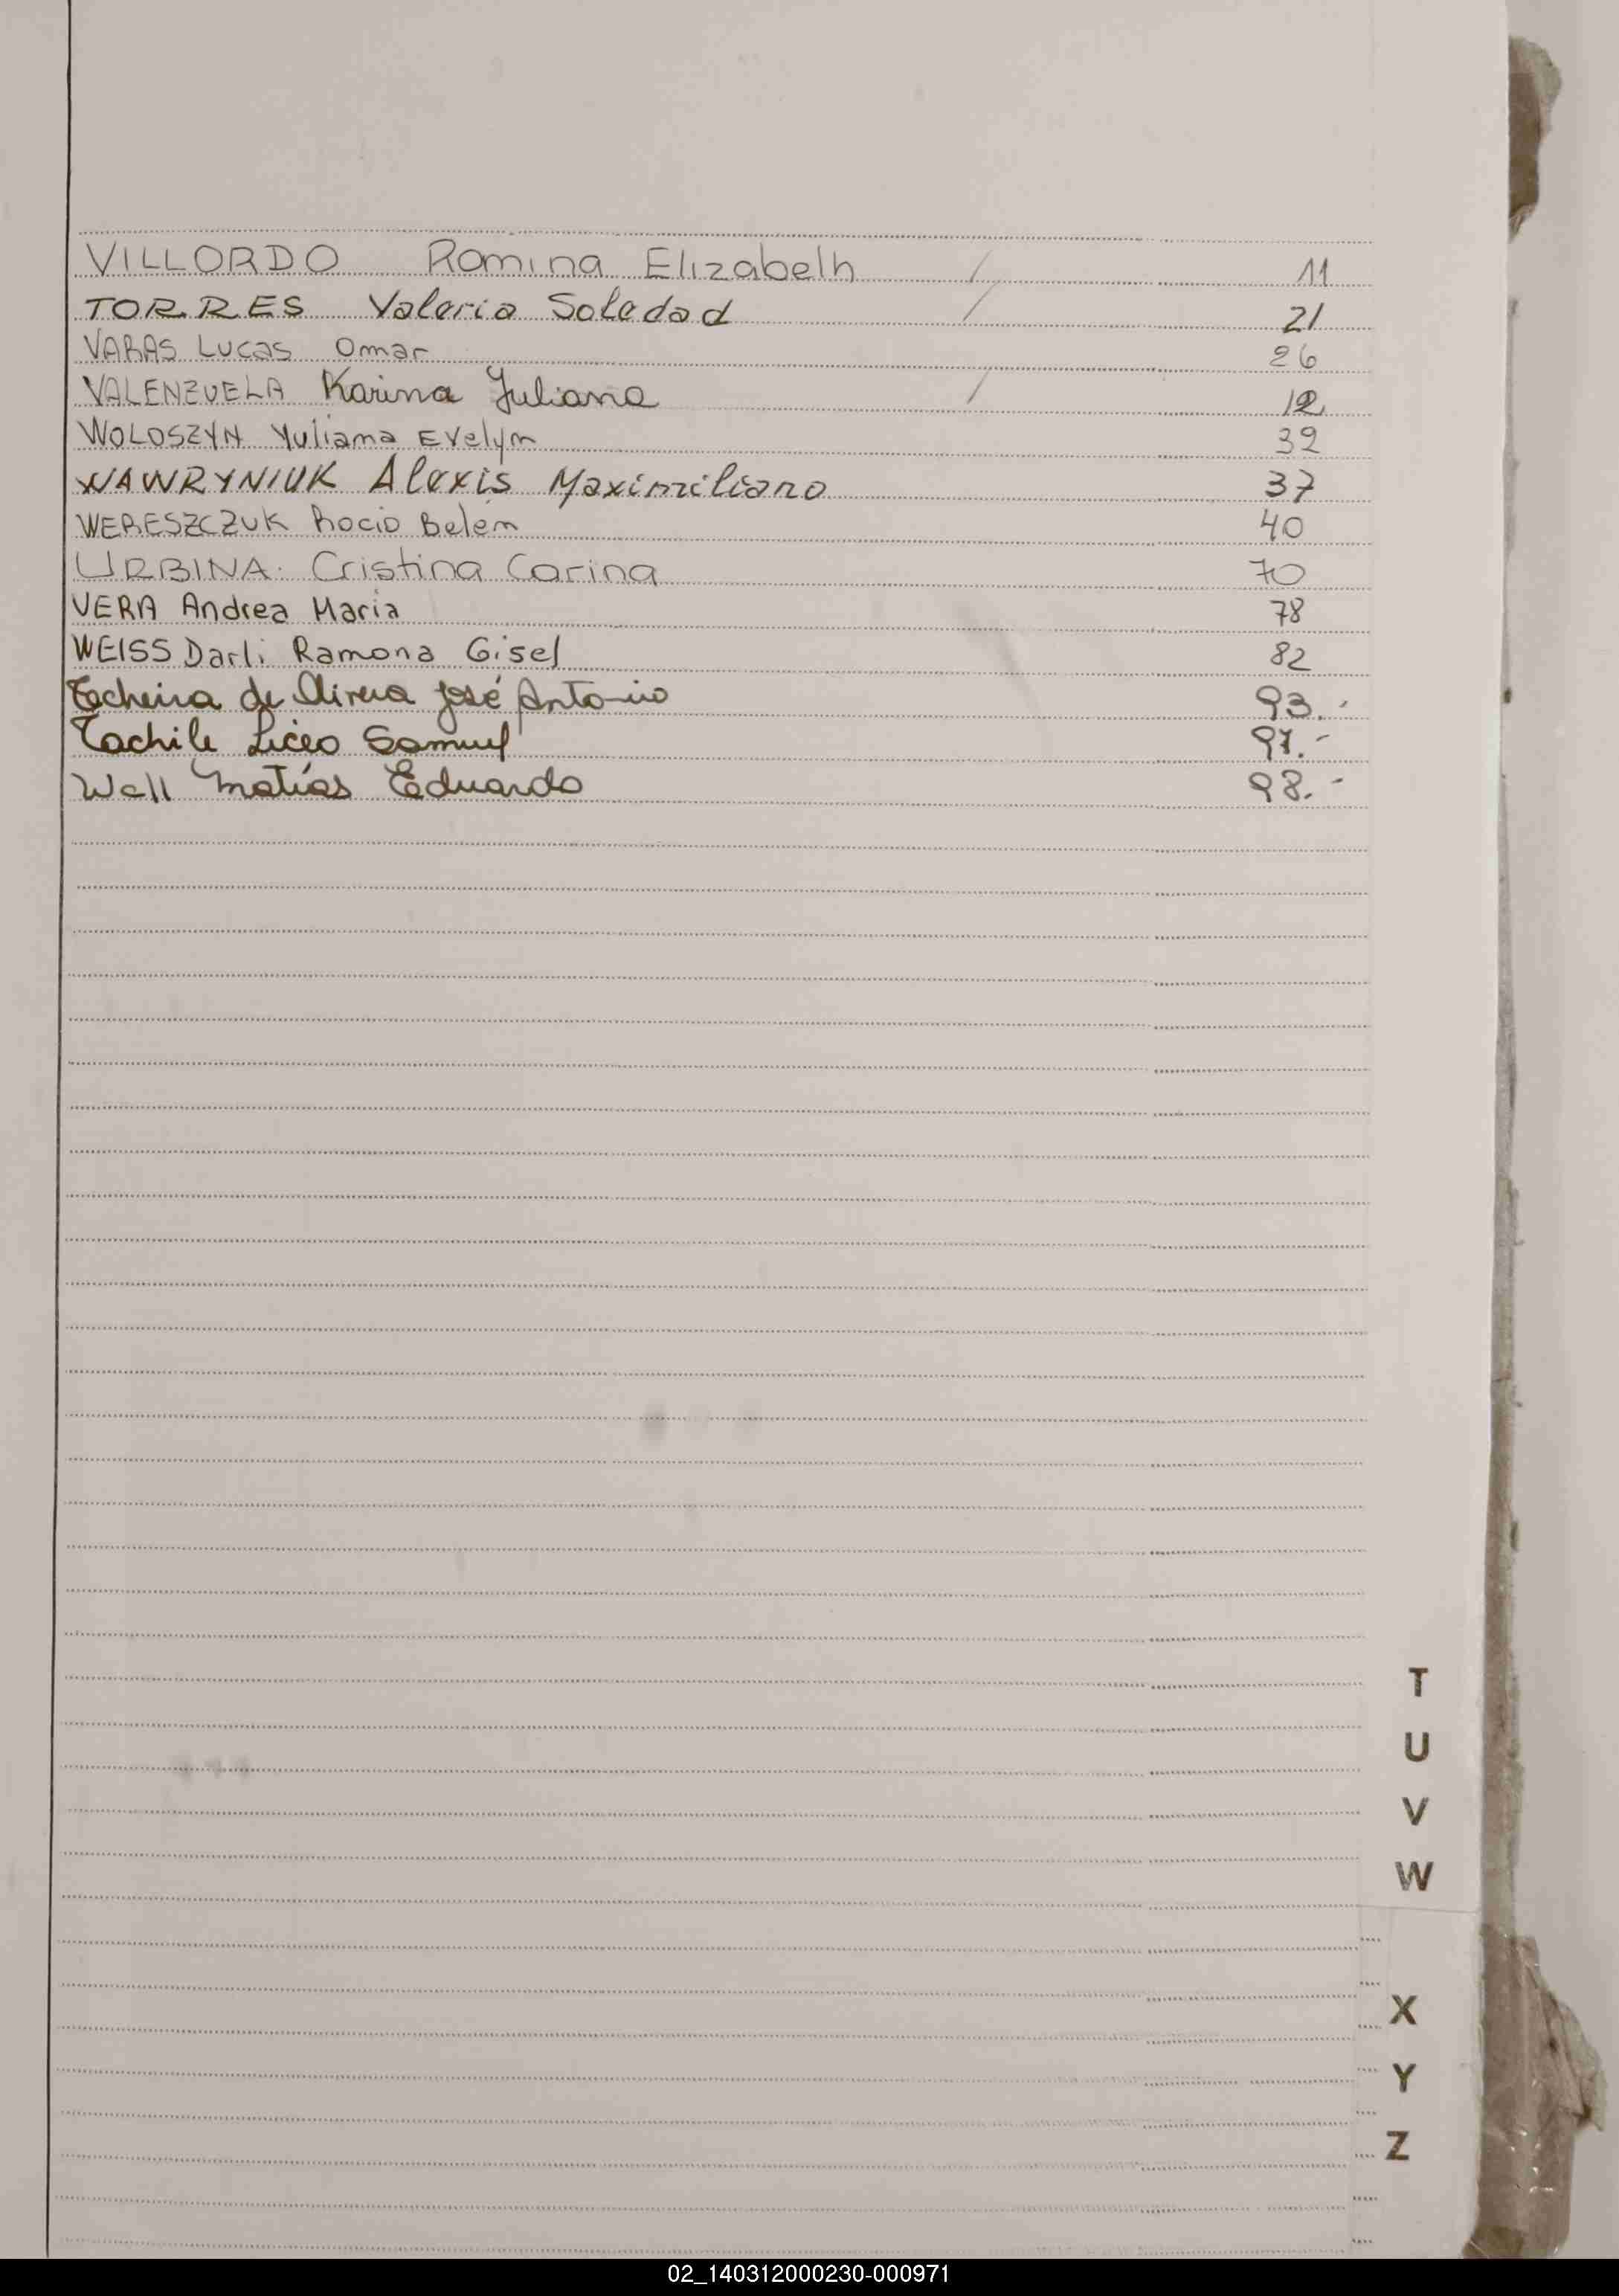 VILLORDO Romina Elizabeth / 11
TORRES Valeria Soledad / 21
VARAS Lucas Omar 26
VALENZUELA Karina Juliana / 12
WOLOSZYN Yuliana Evelyn 32
WAWRYNIUK Alexis Maximiliano 37
WERESZCZUK Rocio Belén 40
URBINA. Cristina Carina 70
VERA Andrea Maria 78
WEISS Darli Ramona Gisel 82
de José Antonio 93.-
Samuel 97.-
Wall Matías Eduardo 98.-
T
U
V
W
X
Y
Z
02_140312000230-000971